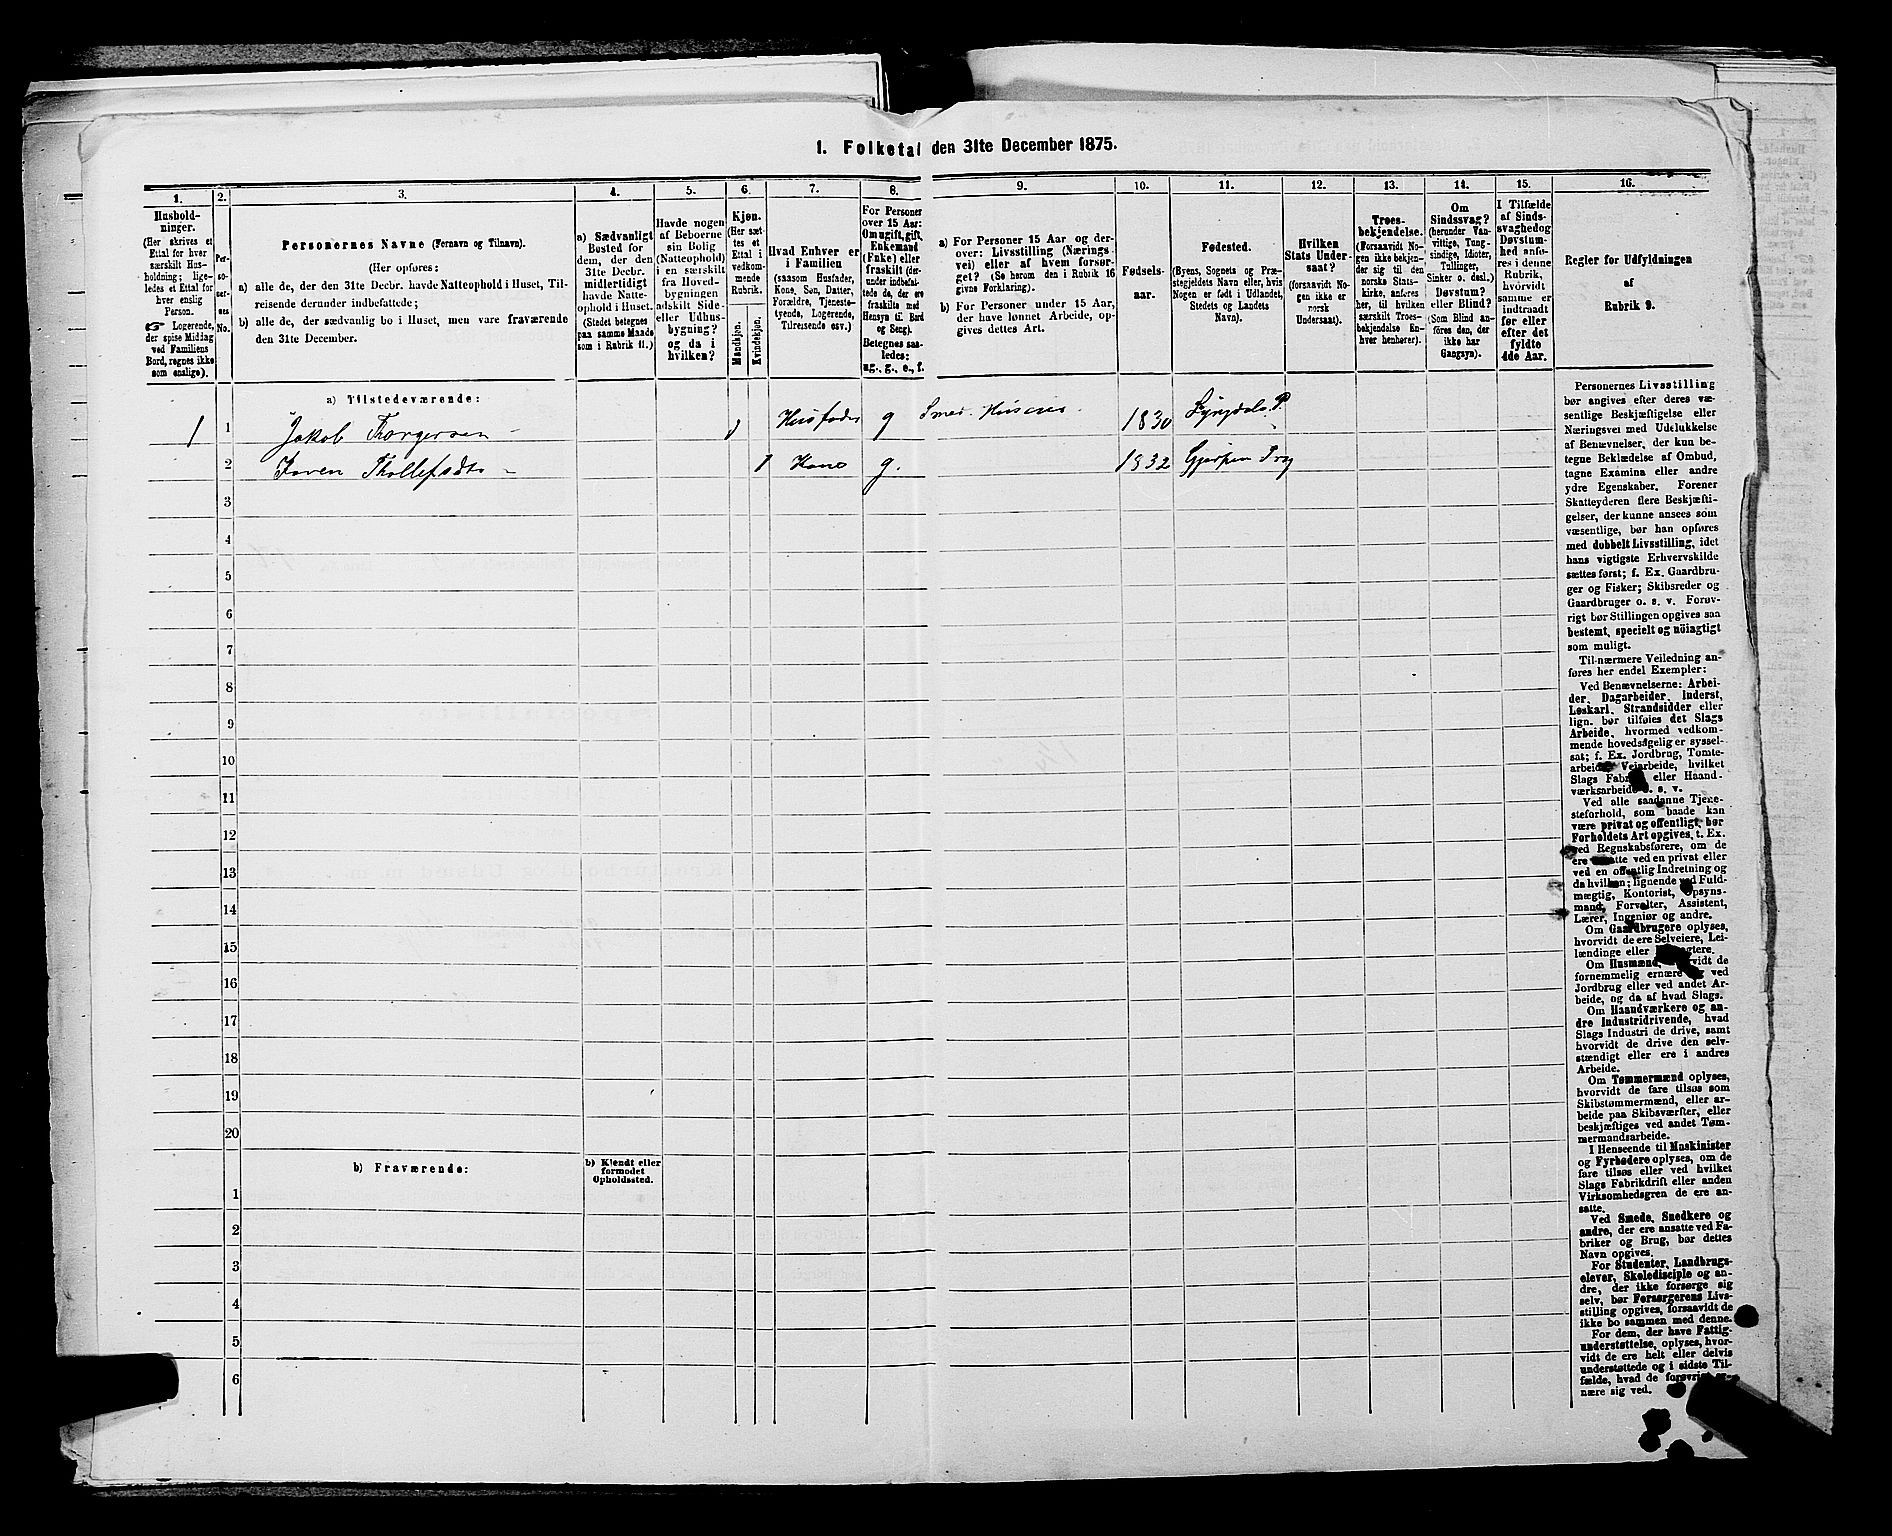 1. Folketal den 31te December 1875.
1. 2. 3. 4. 5. 6. 7. 8. 9. 10. 11. 12. 13. 14. 15. 16.
Hushold-
ninger.
(Her skrives et
Ettal for hver
særskilt Hus-
holdning; lige-
ledes et Ettal for
hver enslig
Person.
☞ Logerende,
der spise Middag
ved Familiens
Bord, regnes ikke
som enslige).
Per-
so-
ner-
nes
No.
Personernes Navne (Fornavn og Tilnavn).
(Her opføres:
a) alle de, der den 31te Decbr. havde Natteophold i Huset, Til-
reisende derunder indbefattede;
b) alle de, der sædvanlig bo i Huset, men vare fraværende
den 31te December.
a) Sædvanligt
Bosted for
dem, der den
31te Decbr.
midlertidigt
havde Natte-
ophold i Huset.
(Stedet betegnes
paa samme Maade
som i Rubrik 11.)
Havde nogen
af Beboerne
sin Bolig
(Natteophold)
i en særskilt
fra Hoved-
bygningen
adskilt Side-
eller Udhus-
bygning?
og da i
hvilken?
Kjøn.
(Her sæt-
tes et
Ettal i
vedkom-
mende
Rubrik.
Mandkjøn.
Kvindekjøn.
Hvad Enhver er
i Familien
(saasom Husfader,
Kone, Søn, Datter,
Forældre, Tjeneste-
tyende, Logerende,
Tilreisende osv.)
For Personer
over 15 Aar:
Om ugift, gift,
Enkemand
(Enke) eller
fraskilt (der-
under indbefat-
tede de, der ere
fraskilte med
Hensyn til Bord
og Seng).
Betegnes saa-
ledes:
ug., g., e., f.
a) For Personer 15 Aar og der-
over: Livsstilling (Nærings-
vei) eller af hvem forsør-
get? (Se herom den i Rubrik 16
givne Forklaring).
b) For Personer under 15 Aar,
der have lønnet Arbeide, op-
gives dettes Art.
Fødsels-
aar.
Fødested.
(Byens, Sognets og Præ-
stegjeldets Navn eller, hvis
Nogen er født i Udlandet,
Stedets og Landets
Navn).
Hvilken
Stats Under-
saat?
(forsaavidt No-
gen ikke er
norsk
Undersaat).
Troes-
bekjendelse.
(Forsaavidt No-
gen ikke bekjen-
der sig til den
norske Stats-
kirke, anføres
her, til hvilken
særskilt Troes-
bekjendelse En-
hver henhører).
Om
Sindssvag?
(herunder Van-
vittige, Tung-
sindige, Idioter,
Tullinger,
Sinker o. desl.)
Døvstum?
eller Blind?
(Som Blind an-
føres den, der
ikke har
Gangsyn).
I Tilfælde
af Sinds-
svaghed og
Døvstum-
hed anfø-
res i denne
Rubrik,
hvorvidt
samme er
indtraadt
før eller
efter det
fyldte
4de Aar.
Regler for Udfyldningen
af
Rubrik 9.
a) Tilstedeværende:
1 1 Jakob Torgersen 1 Husfader g Smed. Husmand. 1830 Lyngdals P.
2 Karen Thollefsdtr 1 Kone g. 1832 Gjerpen Prg
3
4
5
6
7
8
9
10
11
12
13
14
15
16
17
18
19
20
b) Fraværende:
b) Kjendt eller
formodet
Opholdssted.
1
2
3
4
5
6
Personernes Livsstilling
bør angives efter deres væ-
sentlige Beskjæftigelse eller
Næringsvei med Udelukkelse
af Benævnelser, der kun be-
tegne Beklædelse af Ombud,
tagne Examina eller andre
ydre Egenskaber. Forener
Skatteyderen flere Beskjæfti-
gelser, der kunne ansees som
væsentlige, bør han opføres
med dobbelt Livsstilling, idet
hans vigtigste Erhvervskilde
sættes først; f. Ex. Gaardbru-
ger og Fisker; Skibsreder og
Gaardbruger o. s. v. Forøv-
rigt bør Stillingen opgives saa
bestemt, specielt og nøiagtigt
som muligt.
Til nærmere Veiledning an-
føres her endel Exempler:
Ved Benævnelserne: Arbei-
der, Dagarbeider, Inderst,
Løskarl, Strandsidder eller
lign. bør tilføies det Slags
Arbeide, hvormed vedkom-
mende hovedsagelig er syssel-
sat; f. Ex. Jordbrug, Tomte-
arbeide, Veiarbeide, hvilket
Slags Fabrik- eller Haand-
værksarbeide o. s. v.
Ved alle saadanne Tjene-
steforhold, som baade kan
være privat og offentligt, bør
Forholdets Art opgives, t. Ex.
ved Regnskabsførere, om de
ere ansatte ved en privat eller
ved en offentlig Indretning og
da hvilken; lignende ved Fuld-
mægtig, Kontorist, Opsyns-
mand, Forvalter, Assistent,
Lærer, Ingeniør og andre.
Om Gaardbrugere oplyses,
hvorvidt de ere Selveiere, Lei-
lændinge eller Forpagtere.
Om Husmænd, hvorvidt de
fornemmelig ernære sig ved
Jordbrug eller ved andet Ar-
beide, og da af hvad Slags.
Om Haandværkere og an-
dre Industridrivende, hvad
Slags Industri de drive, samt
hvorvidt de drive den selv-
stændigt eller ere i andres
Arbeide.
Om Tømmermænd oplyses,
hvorvidt de fare tilsøs som
Skibstømmermænd, eller ar-
beide paa Skibsværfter, eller
beskjæftiges ved andet Tøm-
mermandsarbeide.
I Henseende til Maskinister
og Fyrbødere oplyses, om de
fare tilsøs eller ved hvilket
Slags Fabrikdrift eller anden
Virksomhedsgren de ere an-
satte.
Ved Smede, Snedkere og
andre, der ere ansatte ved Fa-
briker og Brug, bør dettes
Navn opgives.
For Studenter, Landbrugs-
elever, Skoledisciple og an-
dre, der ikke forsørge sig
selv, bør Forsørgerens Livs-
stilling opgives, forsaavidt de
ikke bo sammen med denne.
For dem, der have Fattig-
understøttelse, oplyses, hvor-
vidt de ere helt eller delvis
understøttede og i sidste Til-
fælde, hvad de forøvrigt er-
nære sig ved.